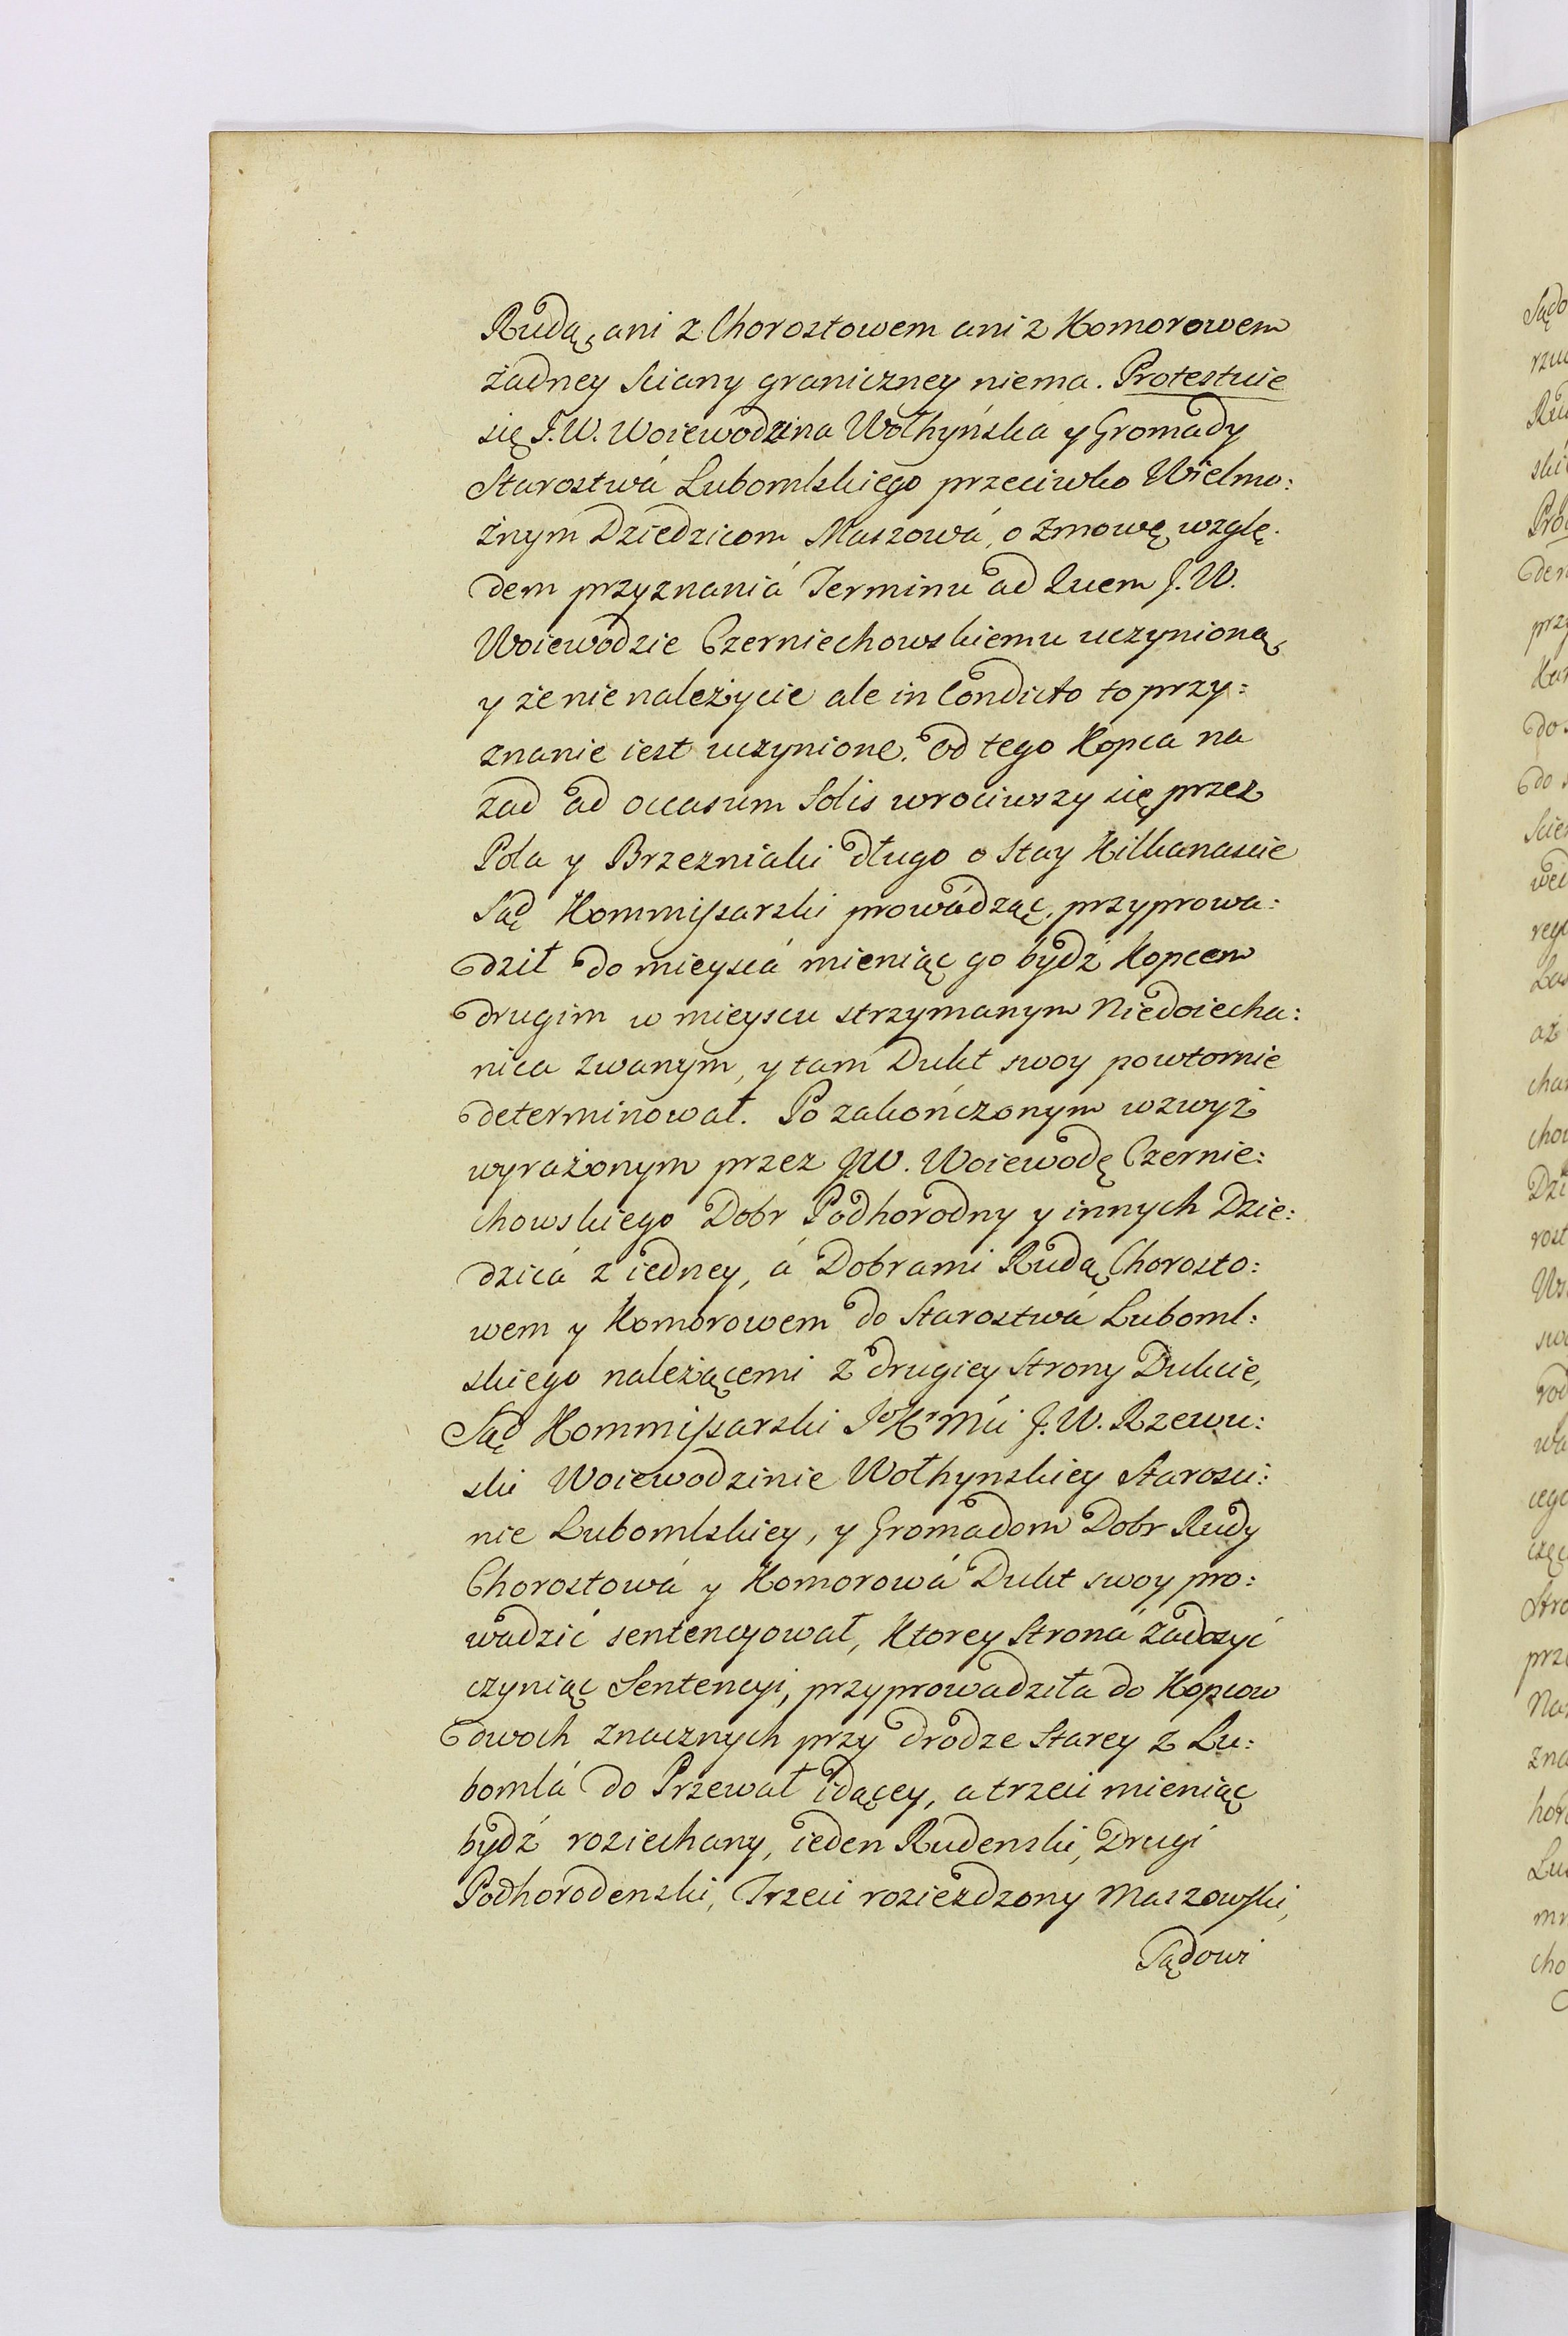 Rudą, ani z Chorostowem ani z Komorowem
żadney sciany graniczney niema. Protestuie
się J.W. Woiewodzina Wołhyńska y Gromady
Starostwá Lubomlskiego przeciwko Wielmo:
żnym Dziedzicom Maszowá, o Zmowę wzglę:
dem przyznaniá Terminu ad Quem J.W.
Woiewodzie Czerniechowskiemu uczynioną,
y że nie należycie ale in Condicto to przy:
znanie iest uczynione. Od tego Kopca na
zad ad occasum Solis wrociwszy się przez
Pola y Brzezniaki długo o Stay Kilkanascie
Sąd Kommissarski prowádząc, przyprowa:
dził do mieyscá mieniąc go bydź Kopcem
drugim w mieyscu strzymanym Niedoiecha:
nica zwanym, y tam Dukt swoy powtornie
determinował. Po zakończonym wzwyż
wyrażonym przez JW. Woiewodę Czernie:
chowskiego Dobr Podhorodny y innych Dzie:
dzicá z iedney, á Dobrami Rudą Chorosto:
wem y Komorowem do Starostwá Luboml:
skiego należącemi z drugiey strony Dukcie,
Sąd Kommissarski J. W. Rzewu:
ski Woiewodzinie Wołhynskiey Starosci:
nie Lubomlskiey, y Gromadom Dobr Rudy
Chorostowá y Komorowá Dukt swoy pro:
wadzić sentencyował, Ktorey Stroná zadosyć
czyniąc Sentencyi, przyprowadziła do Kopcow
dwoch znacznych przy drodze Starey z Lu:
bomlá do Przewał idącey, a trzeci mieniąc
bydź roziechany, ieden Rudenski, Drugi
Podhorodenski, Trzeci rozieżdzony Maszowski,
Sądowi